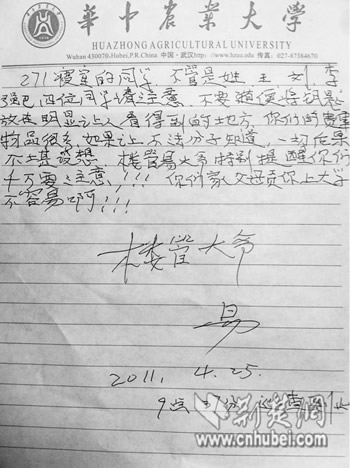 華中農業大學
HUAZHONG AGRICULTURAL UNIVERSITY
Wuhan 430070,P.R.China 中国·武汉 http://www.hzau.edu.cn 027-87384670
271寝室的同学 不管是姓 王 刘 李
强 四位同学请注意,不要随便将钥匙
放在明显让人看得到的地方,你们的贵重
物品很多,如果让不法分子知道,一切后果
不堪设想,楼管易大爷特别提醒你们
千万要注意!!! 你们家父母供你上大学
不容易啊!!!
楼管大爷
易
2011. 4.25.
9点 37分
新楚网
www.cnhubei.com